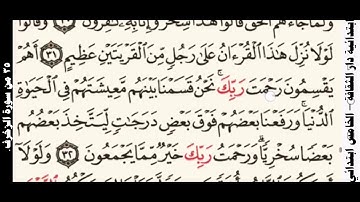 ولما جاءهم الحق قالوا هذا سحر وإنا به كفرون ٣٠ وقالوا
لَوْلَا نُزِّلَ هَٰذَا ٱلْقُرْءَانُ عَلَىٰ رَجُلٍ مِّنَ ٱلْقَرْيَتَيْنِ عَظِيمٍ ٣١ أَهُمْ
يَقْسِمُونَ رَحْمَتَ رَبِّكَ ۚ نَحْنُ قَسَمْنَا بَيْنَهُم مَّعِيشَتَهُمْ فِى ٱلْحَيَوٰةِ
ٱلدُّنْيَا ۚ وَرَفَعْنَا بَعْضَهُمْ فَوْقَ بَعْضٍ دَرَجَٰتٍ لِّيَتَّخِذَ بَعْضُهُم
بَعْضًا سُخْرِيًّا ۗ وَرَحْمَتُ رَبِّكَ خَيْرٌ مِّمَّا يَجْمَعُونَ ٣٢ وَلَوْلَا
ابتدائية دار الثقافة - الخامس ابتدائي
٣٥ من سورة الزخرف.